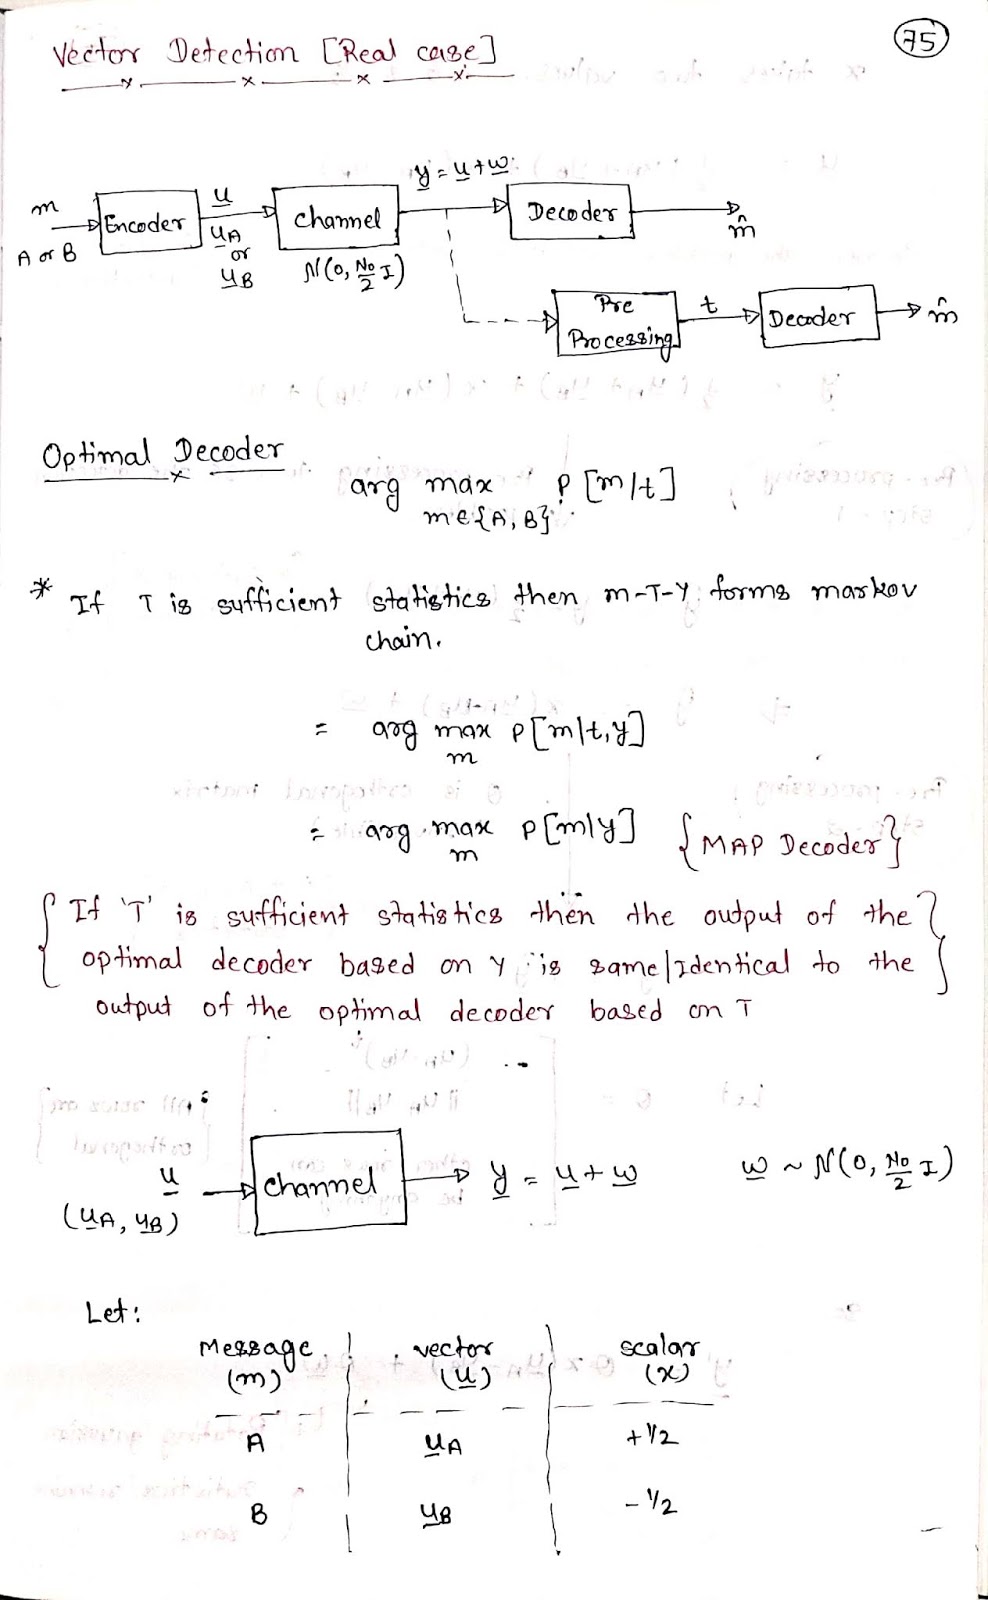 75
Vector Detection [Real case]
y = u + w
m
A or B
Encoder
u
uA
or
uB
Channel
N(0, No/2 I)
Decoder
m̂
Pre
Processing
t
Decoder
m̂
Optimal Decoder
arg max P[m/t]
m∈{A,B}
* If T is sufficient statistics then m-T-Y forms markov
chain.
= arg max P[m|t,y]
m
= arg max P[m|y] {MAP Decoder}
m
{If 'T' is sufficient statistics then the output of the
optimal decoder based on Y is same/Identical to the
output of the optimal decoder based on T}
u
(uA, uB)
Channel
y = u + w
w ~ N(0, No/2 I)
Let:
Message vector scalar
(m) (u) (x)
A uA +1/2
B uB -1/2